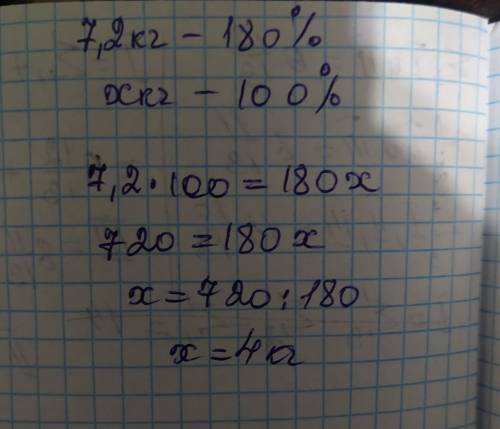 7,2кг – 180%
хкг – 100%
7,2·100 = 180х
720 = 180х
х = 720:180
х = 4кг